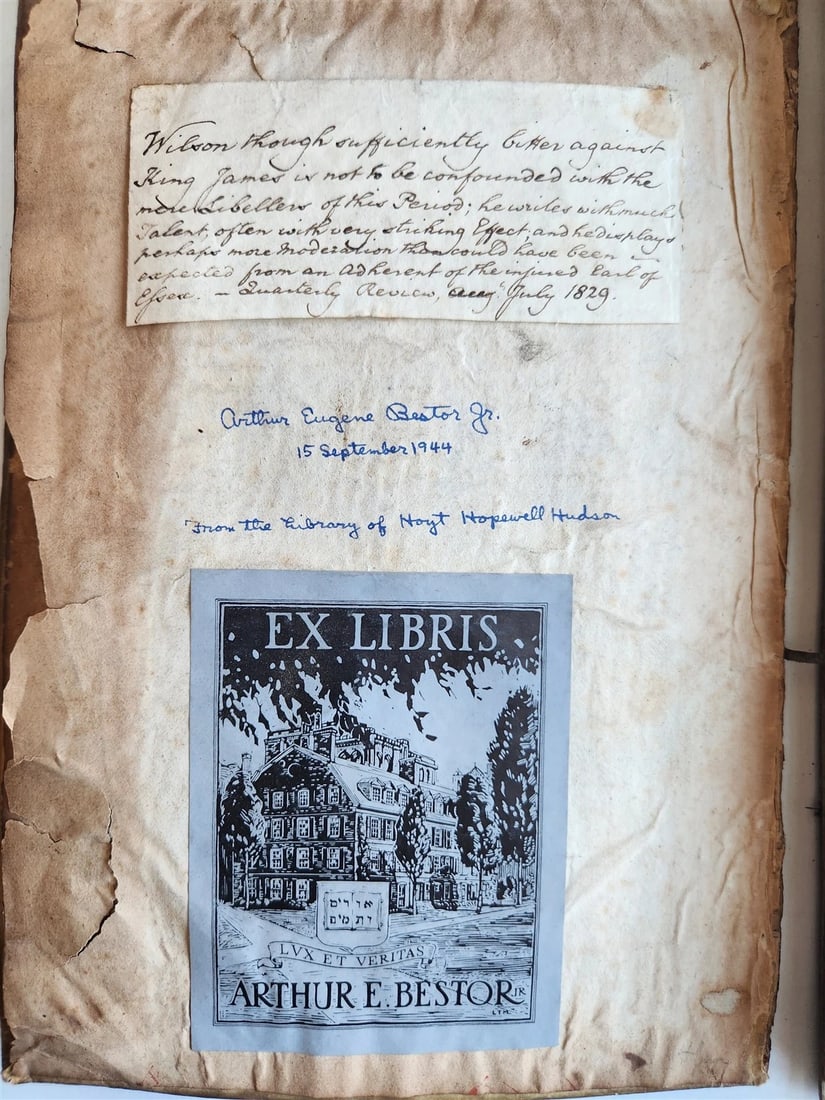 Wilson though sufficiently bitter against
King James is not to be confounded with the
mere Libellers of this Period; he writes with much
Talent, often with very striking Effect, and he displays
perhaps more Moderation than could have been
expected from an Adherent of the injured Earl of
Essex. — Quarterly Review, July 1829.
Arthur Eugene Bestor Jr.
15 September 1944
From the Library of Hoyt Hopewell Hudson
EX LIBRIS
אורים
ותמים
LVX ET VERITAS
ARTHUR E. BESTOR JR
LTM